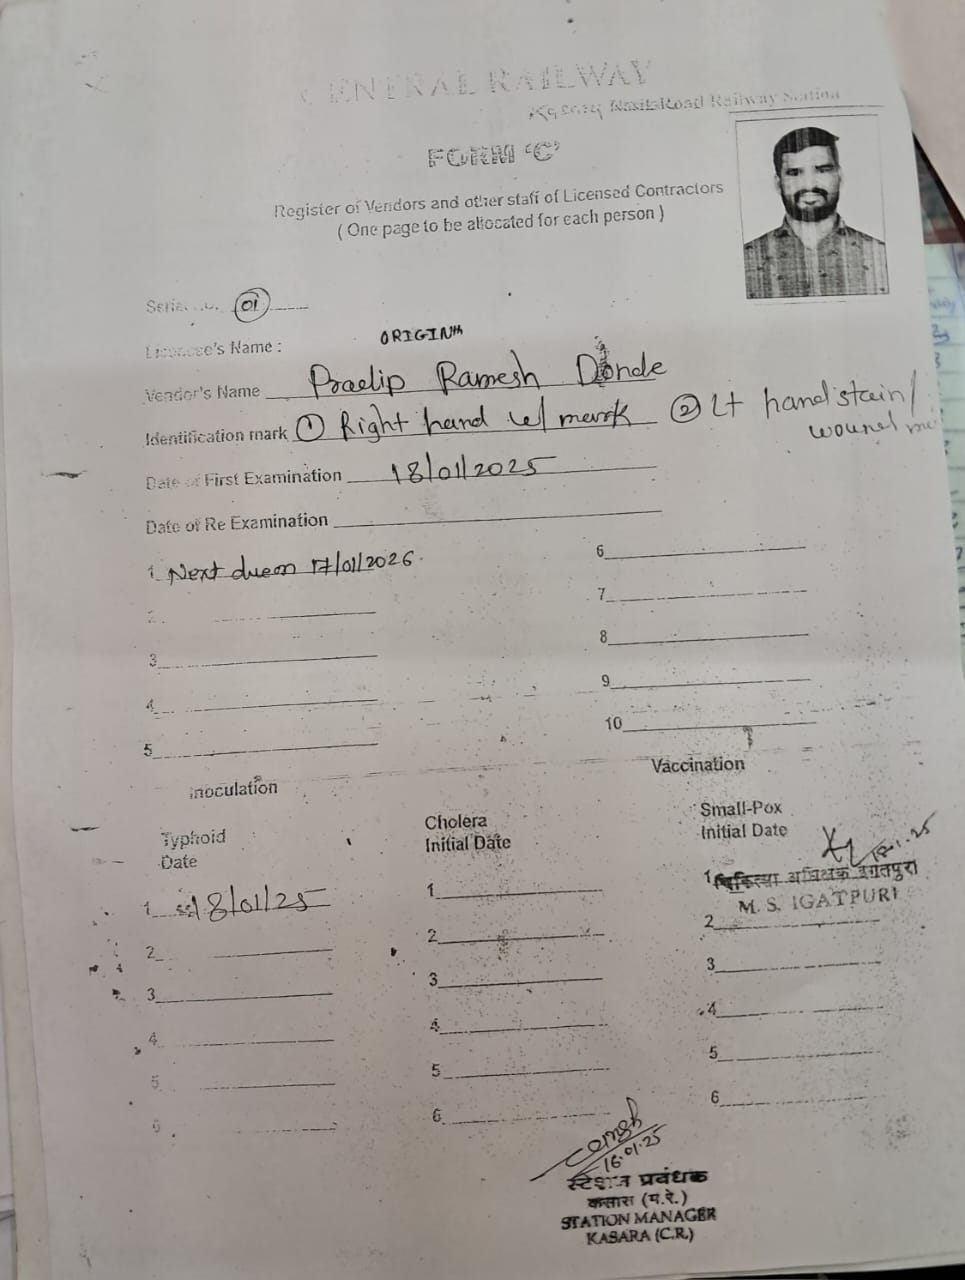 CENTRAL RAILWAY
NasikRoad Railway Station
FORM 'C'
Register of Vendors and other staff of Licensed Contractors
( One page to be allocated for each person )
Serial No. 01
Licensee's Name : ORIGINth
Vendor's Name Pradip Ramesh Donde
Identification mark ① Right hand w/ mark ② Lt hand stain/
wound
Date of First Examination 18/01/2025
Date of Re Examination
1 Next due on 17/01/2026.
6
2
7
3
8
4
9
5
10
Inoculation
Vaccination
Typhoid
Date
Cholera
Initial Date
Small-Pox
Initial Date
1 18/01/25
1
1 चिकित्सा अधिक्षक इगतपुरी
M. S. IGATPURI
2
2
2
3
3
3
4
4
4
5
5
5
6
6
6
16.01.25
स्टेशन प्रबंधक
कसारा (म.रे.)
STATION MANAGER
KASARA (C.R.)